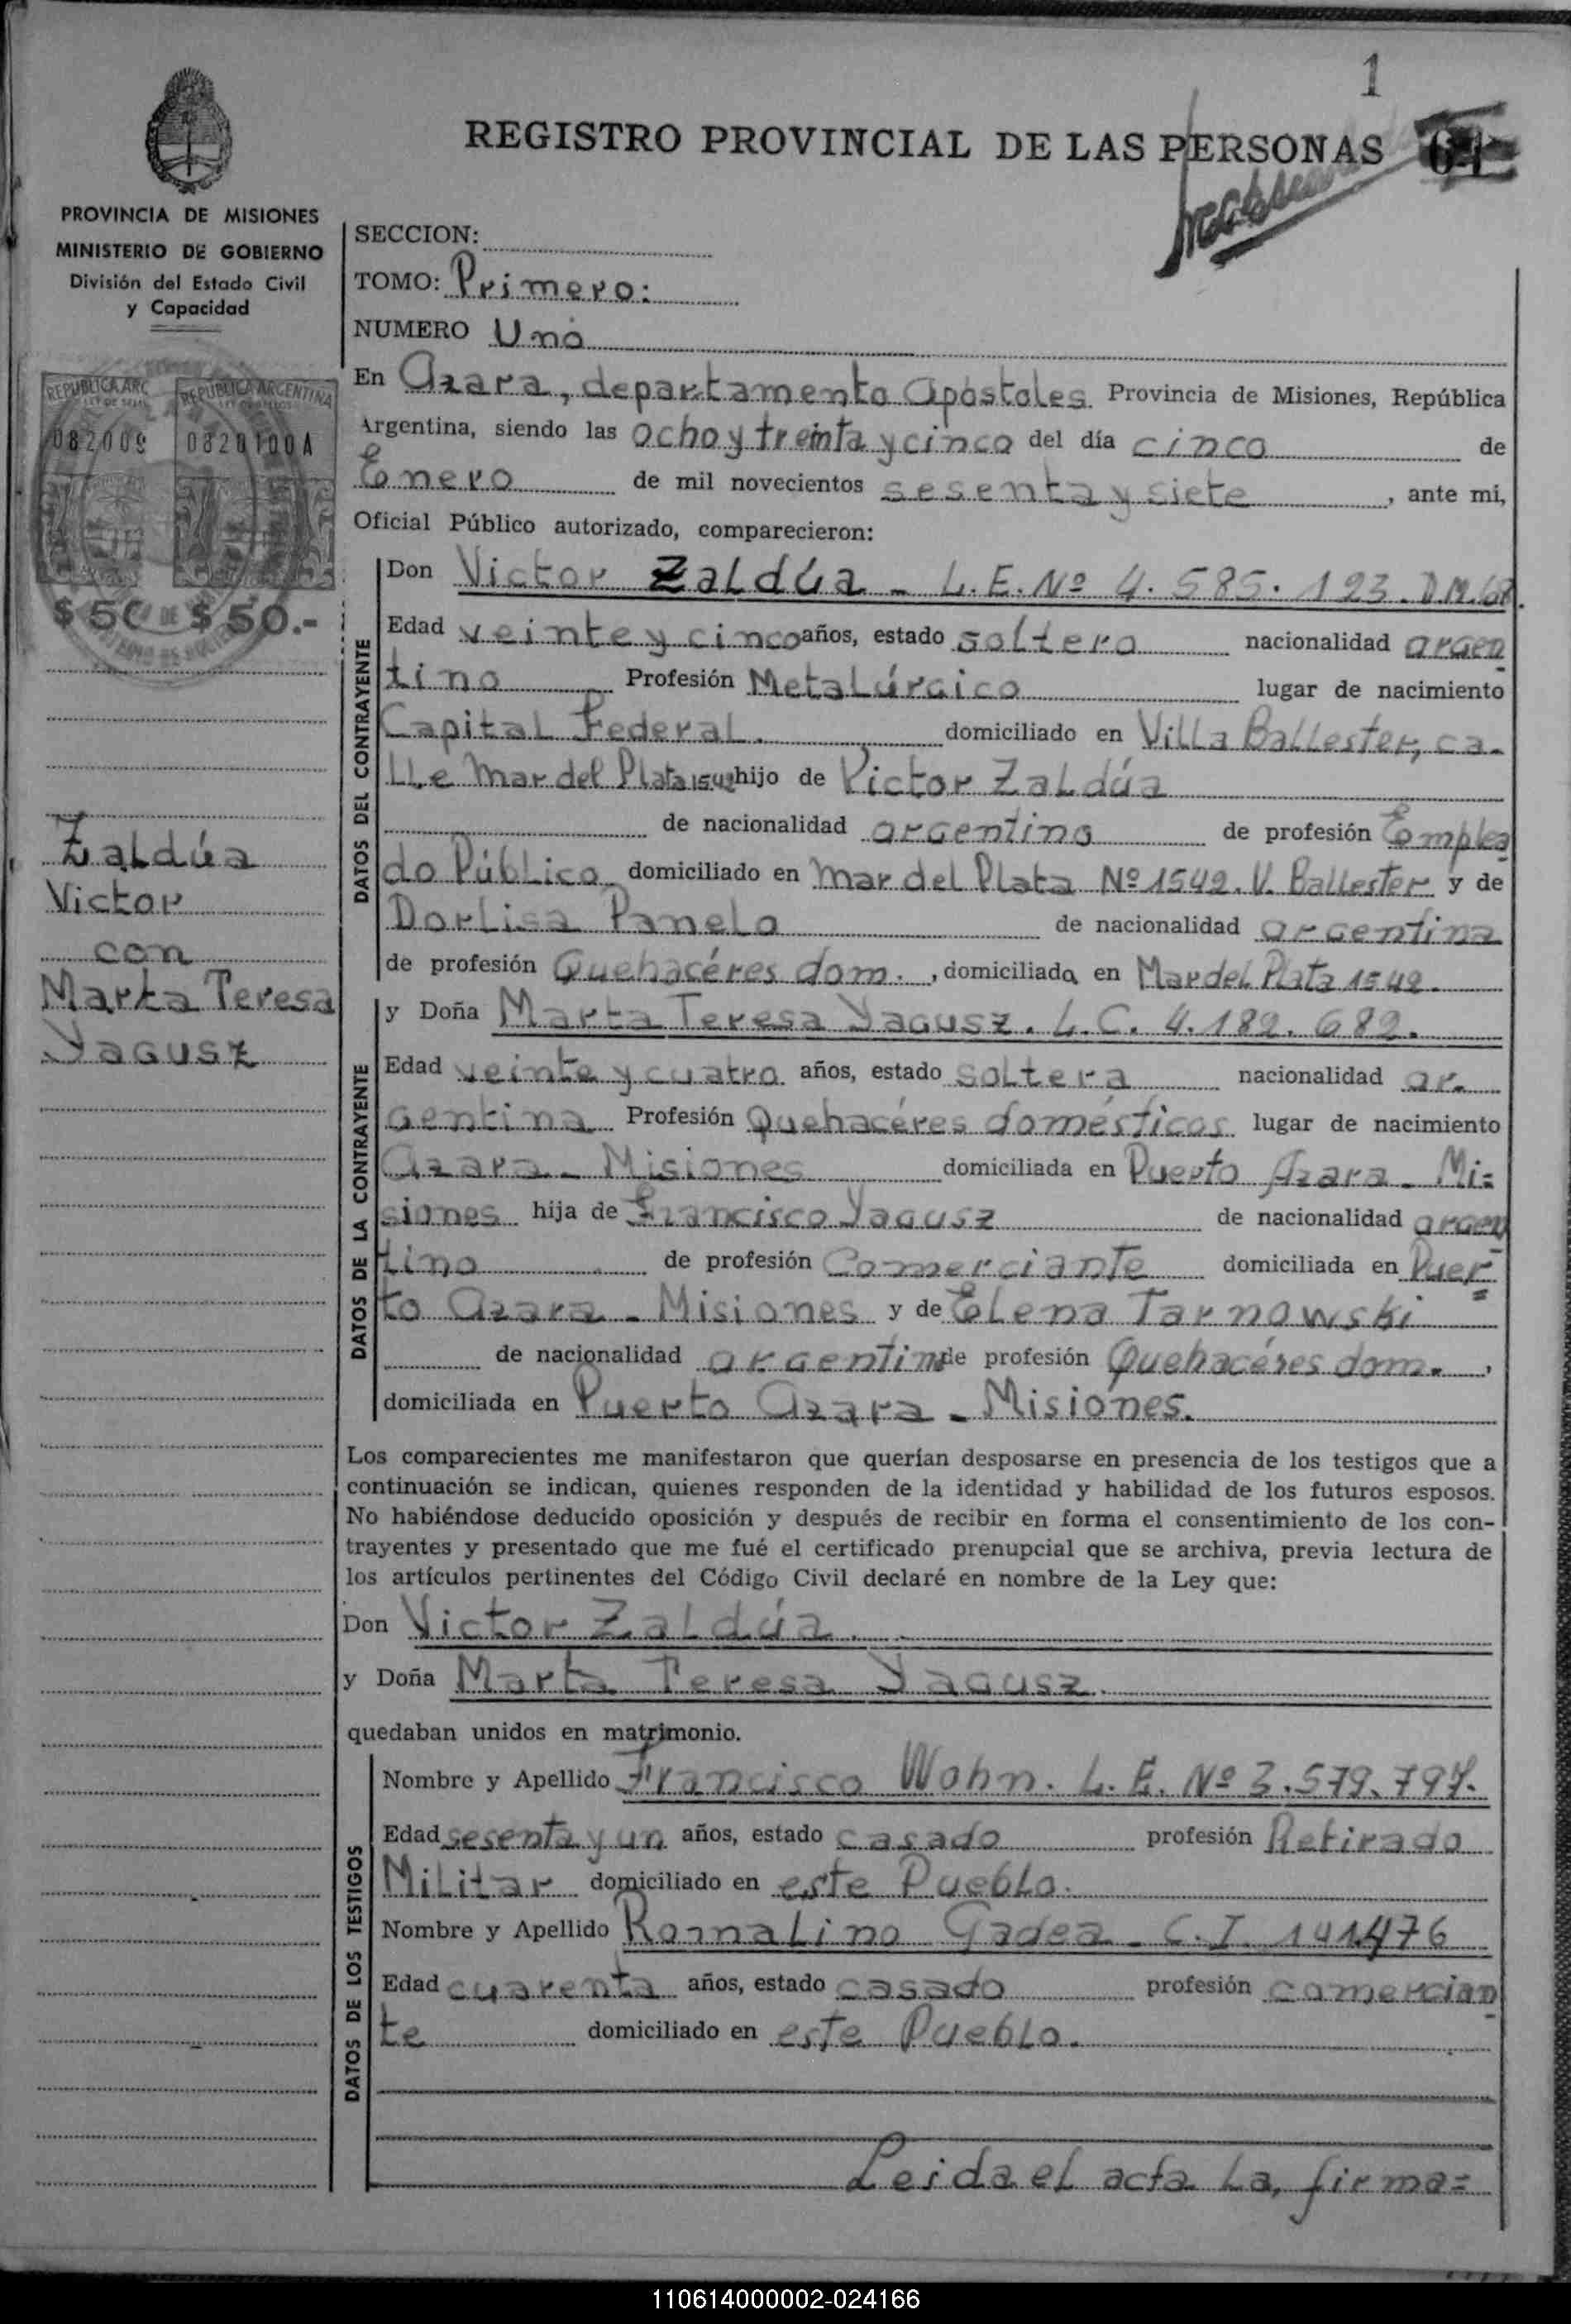 1
REGISTRO PROVINCIAL DE LAS PERSONAS
PROVINCIA DE MISIONES
MINISTERIO DE GOBIERNO
División del Estado Civil
y Capacidad
REPUBLICA ARG
REPUBLICA ARGENTINA
082009
0820100A
$50 $50.-
Zaldúa
Victor
con
Marta Teresa
Yagusz
SECCION:
TOMO: Primero:
NUMERO Uno
En Azara, departamento Apóstoles Provincia de Misiones, República
Argentina, siendo las ocho y treinta y cinco del día cinco de
Enero de mil novecientos sesenta y siete, ante mi,
Oficial Público autorizado, comparecieron:
DATOS DEL CONTRAYENTE
Don Victor Zaldúa - L.E. Nº 4.585.123. D.M.68.
Edad veinte y cinco años, estado soltero nacionalidad argen
tino Profesión Metalúrgico lugar de nacimiento
Capital Federal. domiciliado en Villa Ballester, ca-
lle Mar del Plata 1549 hijo de Victor Zaldúa
de nacionalidad argentino de profesión Emplea
do Público domiciliado en Mar del Plata Nº 1549. V. Ballester y de
Dorlisa Panelo de nacionalidad argentina
de profesión Quehacéres dom. , domiciliada en Mar del Plata 1549.
DATOS DE LA CONTRAYENTE
y Doña Marta Teresa Yagusz. L.C. 4.182.682.
Edad veinte y cuatro años, estado soltera nacionalidad ar-
gentina Profesión Quehacéres domésticos lugar de nacimiento
Azara - Misiones domiciliada en Puerto Azara - Mi=
siones hija de Francisco Yagusz de nacionalidad argen
tino de profesión Comerciante domiciliada en Puer=
to Azara - Misiones y de Elena Tarnowski
de nacionalidad argentina de profesión Quehacéres dom. ,
domiciliada en Puerto Azara - Misiones.
Los comparecientes me manifestaron que querían desposarse en presencia de los testigos que a
continuación se indican, quienes responden de la identidad y habilidad de los futuros esposos.
No habiéndose deducido oposición y después de recibir en forma el consentimiento de los con-
trayentes y presentado que me fué el certificado prenupcial que se archiva, previa lectura de
los artículos pertinentes del Código Civil declaré en nombre de la Ley que:
Don Victor Zaldúa.
y Doña Marta Teresa Yagusz.
quedaban unidos en matrimonio.
DATOS DE LOS TESTIGOS
Nombre y Apellido Francisco Wohn. L.E. Nº 3.579.797.
Edad sesenta y un años, estado casado profesión Retirado
Militar domiciliado en este Pueblo.
Nombre y Apellido Romalino Gadea - C.I. 141476
Edad cuarenta años, estado casado profesión comercian
te domiciliado en este Pueblo.
Leida el acta la, firma=
110614000002-024166